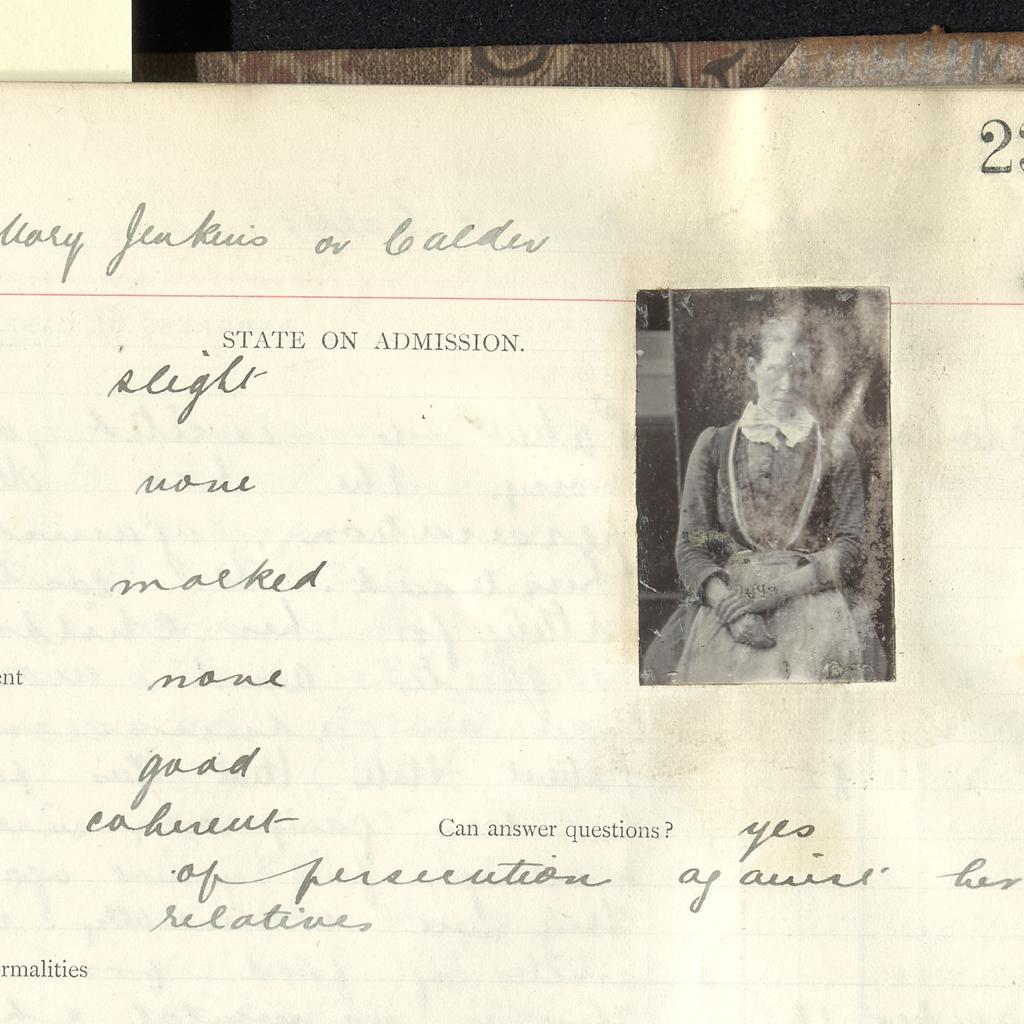 23
Mary Jenkins or Calder
STATE ON ADMISSION.
slight
none
marked
ent
none
good
coherent Can answer questions? yes
of persecution against her
relatives
rmalities